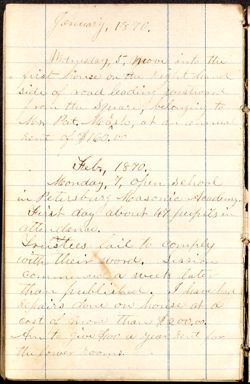 January, 1870.
Wednesday, 5, move into the
first house on the right hand
side of road leading eastward
from the square, belonging to
Mr. Marsh, at an annual
rent of $160.00
Feb, 1870.
Monday, 7, open school
in Petersburg Masonic Academy.
First day about 47 pupils in
attendance.
Trustees fail to comply
with their word. Session
commenced a week later
than published. I have had
repairs done on house at a
cost of more than $200.00
Am to give for a year rent for
the lower rooms.